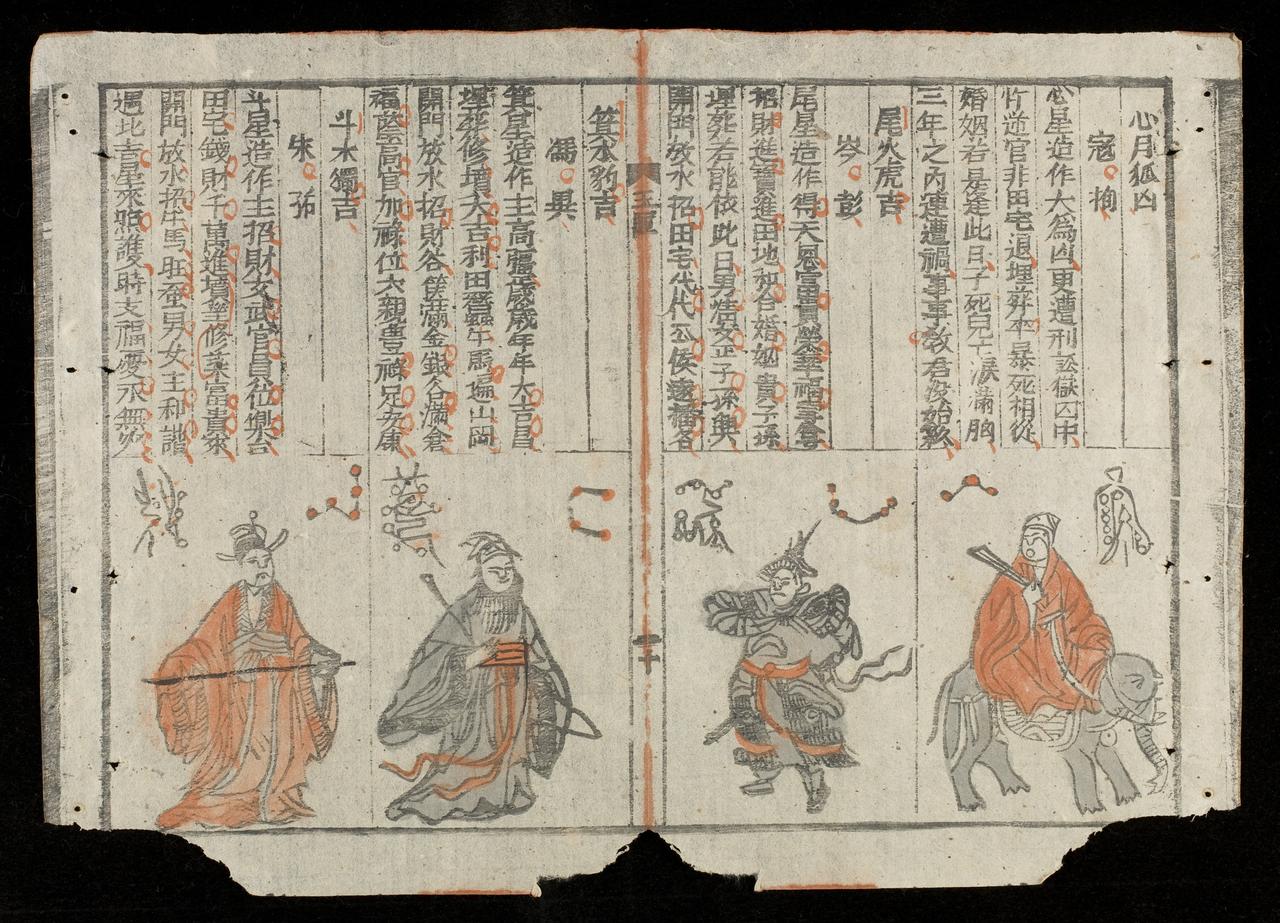 心月狐凶
寇 恂
心星造作大為凶更遭刑訟獄囚中
忤逆官非田宅退埋葬卒暴死相從
婚姻若是逢此日子死兒亡淚滿胸
三年之內連遭禍事事教君沒始終
尾火虎吉
岑 彭
尾星造作得天恩富貴榮華福
招財進寶進田地和合婚姻貴子孫
埋葬若能依此日男清女正子孫興
開門放水招田宅代代公侯遠播名
二十
箕水豹吉
馮 異
箕星造作主高強歲歲年年大吉昌
埋葬修墳大吉利田蠶牛馬遍山岡
開門放水招財谷篋滿金銀谷滿倉
福蔭高官加祿位六親豊祿足安康
斗木獬吉
朱 祐
斗星造作主招財文武官員位鼎台
田宅錢財千萬進墳塋修築富貴來
開門放水招牛馬旺蚕男女主和諧
遇此吉星來照護時支福慶永無災